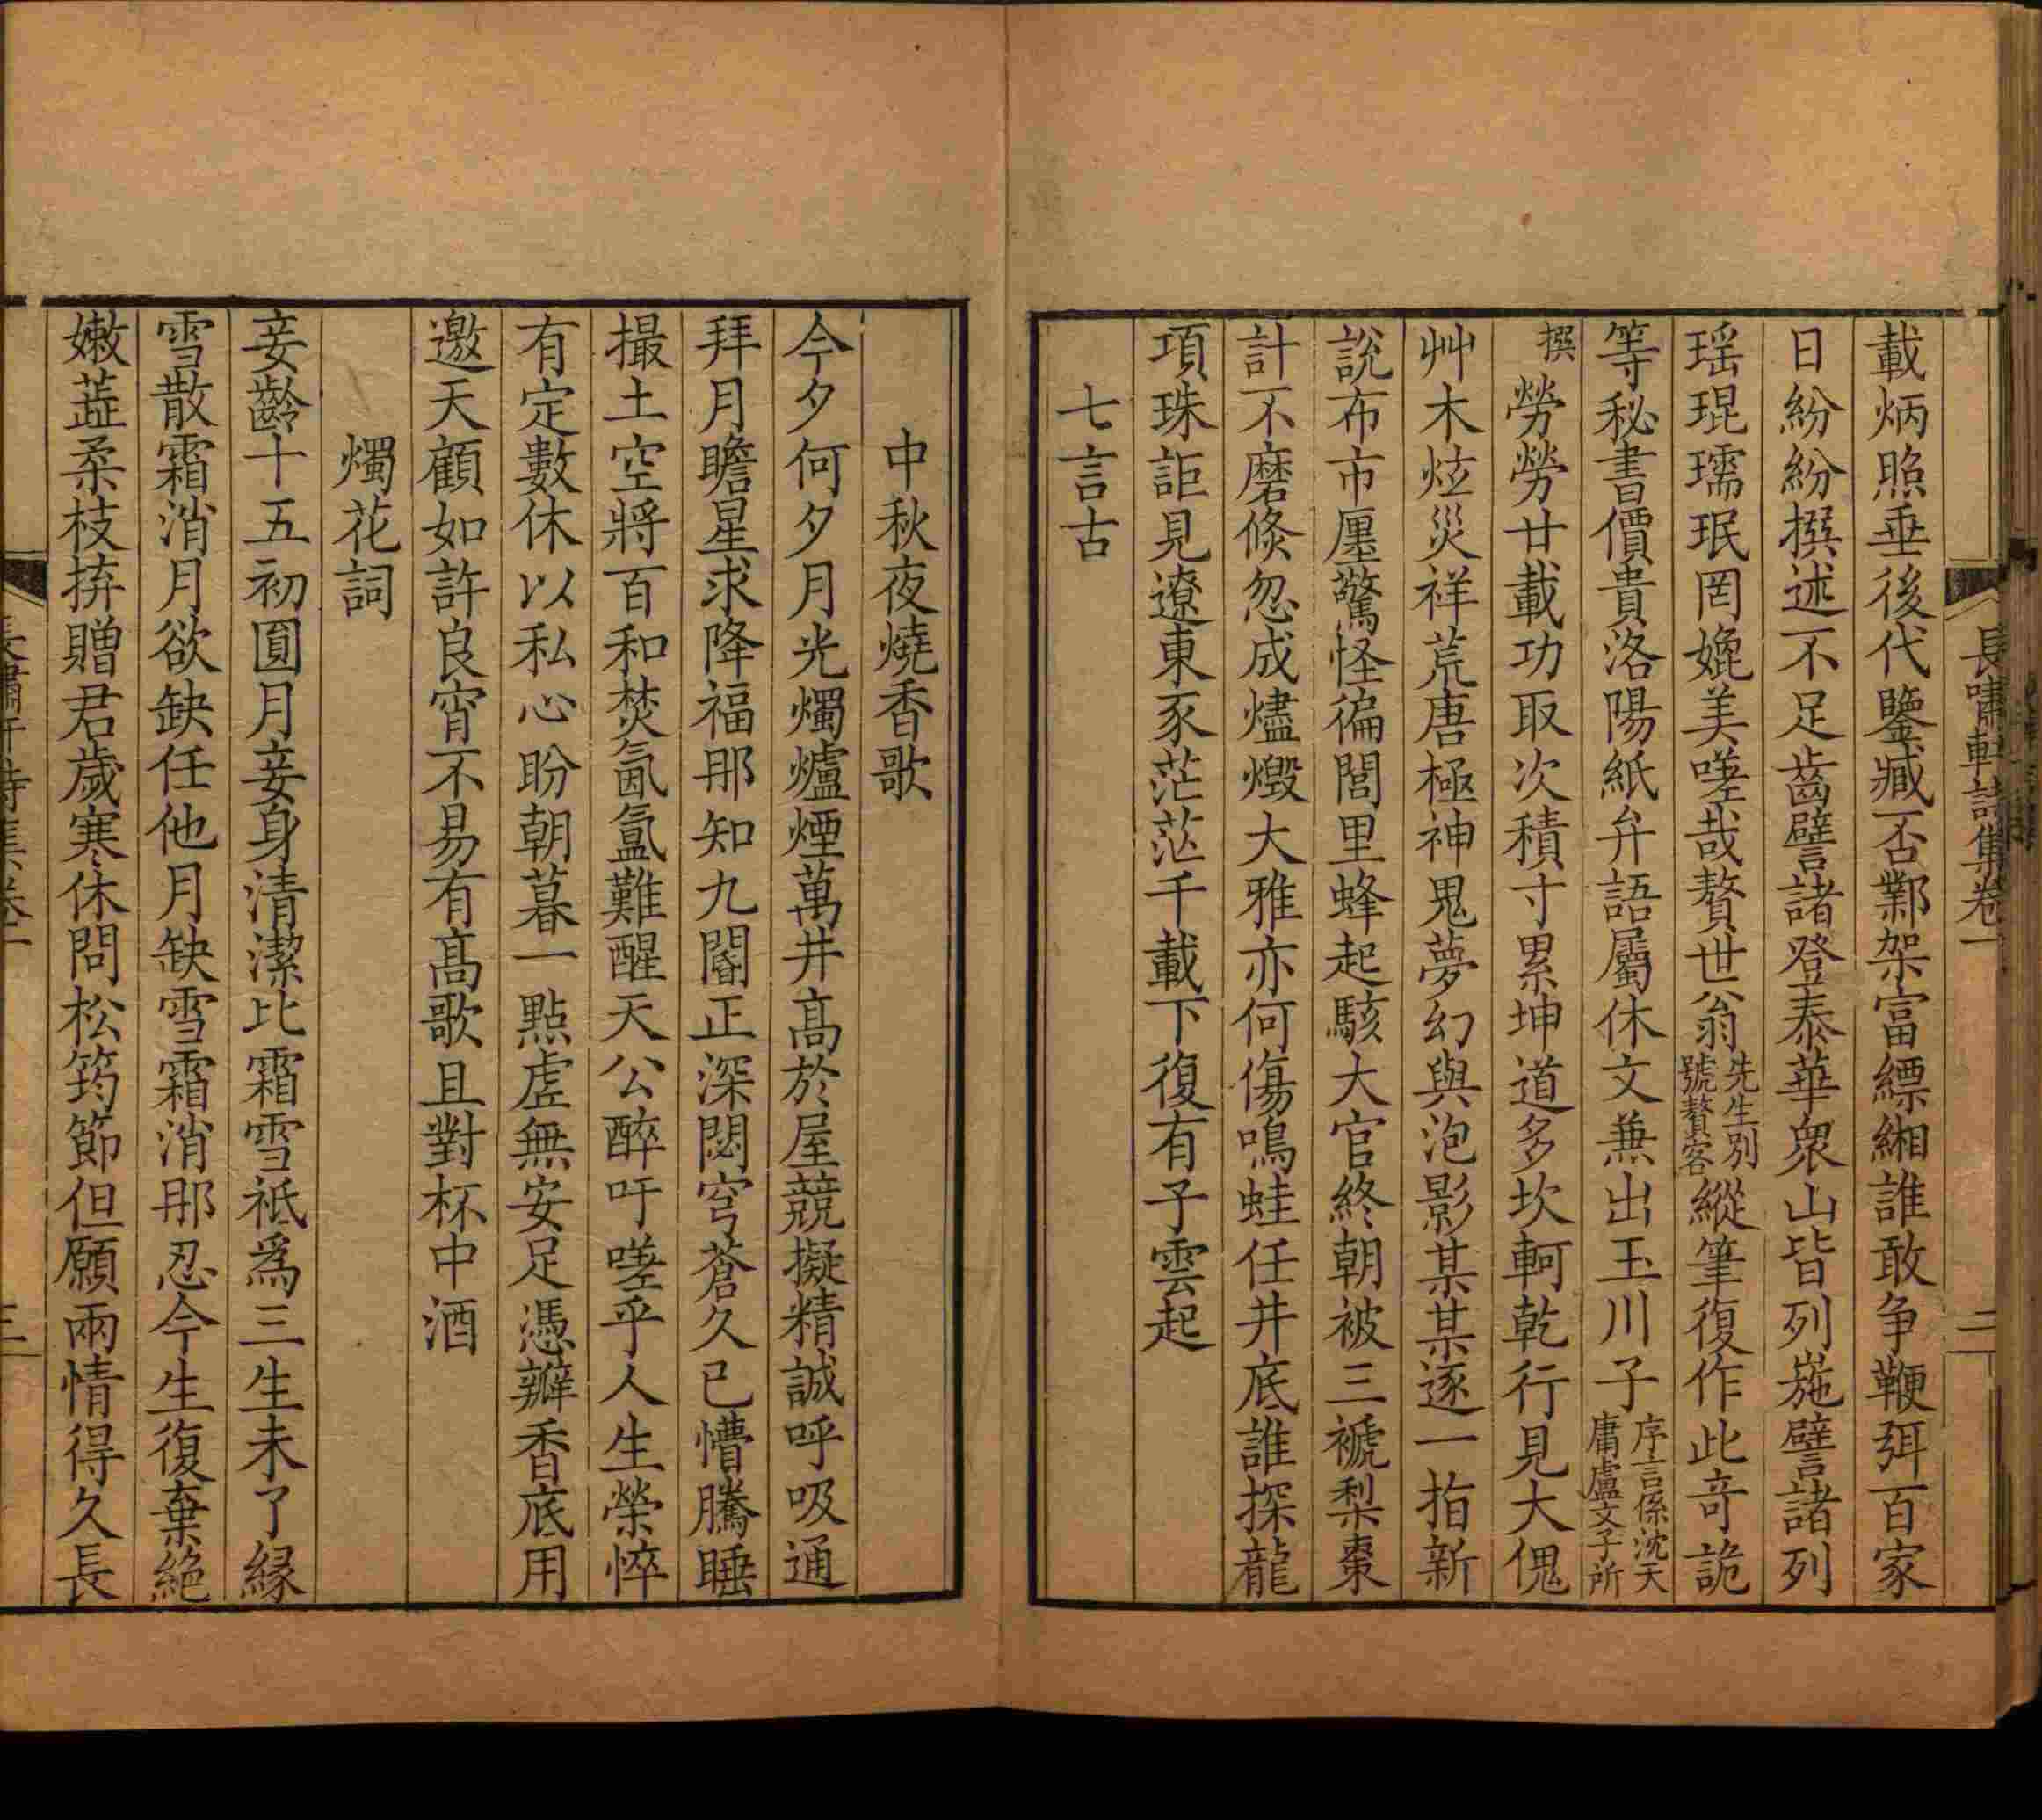 長嘯軒詩集卷一
二
載炳照垂後代鑒臧否鄴架富縹緗誰敢争鞭弭百家
日紛紛撰述不足齒譬諸登泰華衆山皆列㠊譬諸列
瑶琨瓀珉罔媲美嗟哉贅世翁先生別號贅客縱筆復作此奇詭
等秘書價貴洛陽紙弁語屬休文兼出玉川子序言係沈天庸盧文子所
撰勞勞廿載功取次積寸累坤道多坎軻乾行見大傀
艸木炫災祥荒唐極神鬼夢幻與泡影某某逐一指新
說布市廛驚怪徧閭里蜂起駭大官終朝被三褫梨棗
計不磨倏忽成燼燬大雅亦何傷鳴蛙任井底誰探龍
項珠詎見遼東豕茫茫千載下復有子雲起
七言古
中秋夜燒香歌
今夕何夕月光燭爐煙萬井高於屋競擬精誠呼吸通
拜月瞻星求降福那知九閽正深閟穹蒼久已懵騰睡
撮土空將百和焚氤氳難醒天公醉吁嗟乎人生榮悴
有定數休以私心盼朝暮一點虛無安足憑瓣香底用
邀天顧如許良宵不易有高歌且對杯中酒
燭花詞
妾齡十五初圓月妾身清潔比霜雪祇爲三生未了緣
雪散霜消月欲缺任他月缺雪霜消那忍今生復棄絕
嫩蕋柔枝拚贈君歲寒休問松筠節但願兩情得久長
長嘯軒詩集卷一
三